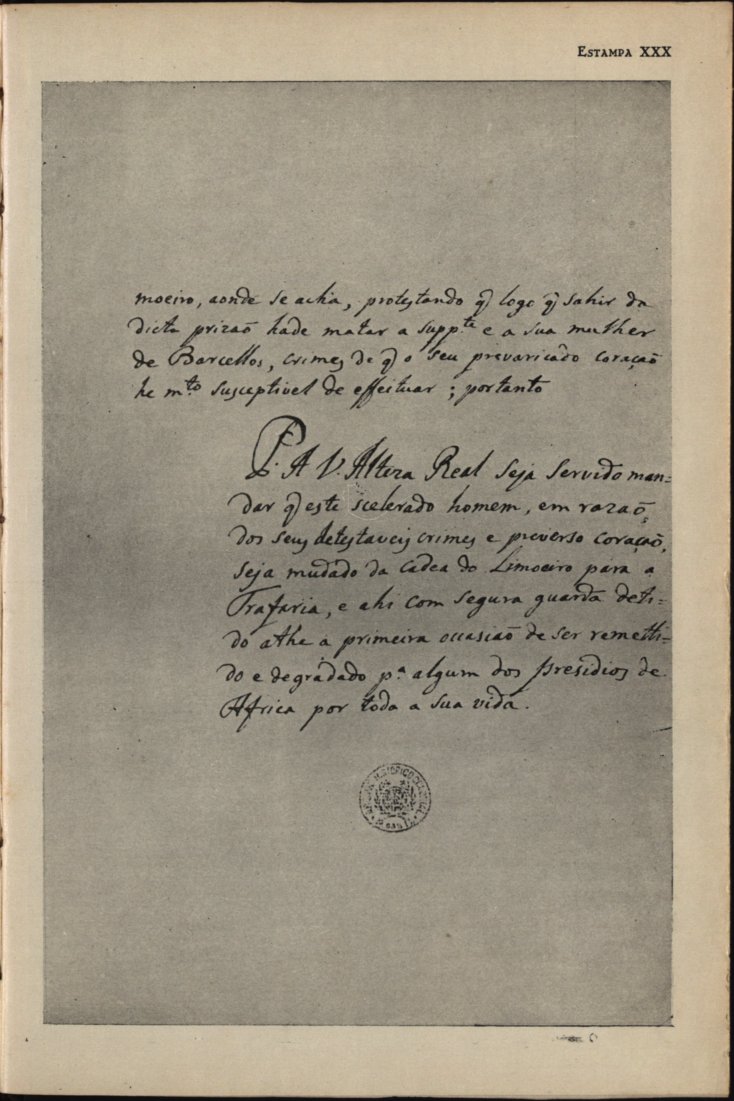 Estampa XXX
moeiro, aonde se acha, protestando q̃ logo q̃ sahir da
dicta prizaõ hade matar a supp.te e a sua mulher
de Barcellos, crimes de q̃ o seu prevaricado coraçaõ
he m.to susceptivel de effeituar; portanto
P. A V. Alteza Real seja servido man=
dar q̃ este scelerado homem, em razaõ
dos seus detestaveis crimes e preverso coraçaõ,
seja mudado da cadea do Limoeiro para a
Trafaria, e ahi com segura guarda deti=
do athe a primeira occasiaõ de ser remetti=
do e degrádado p.a algum dos presidios de
Africa por toda a sua vida.